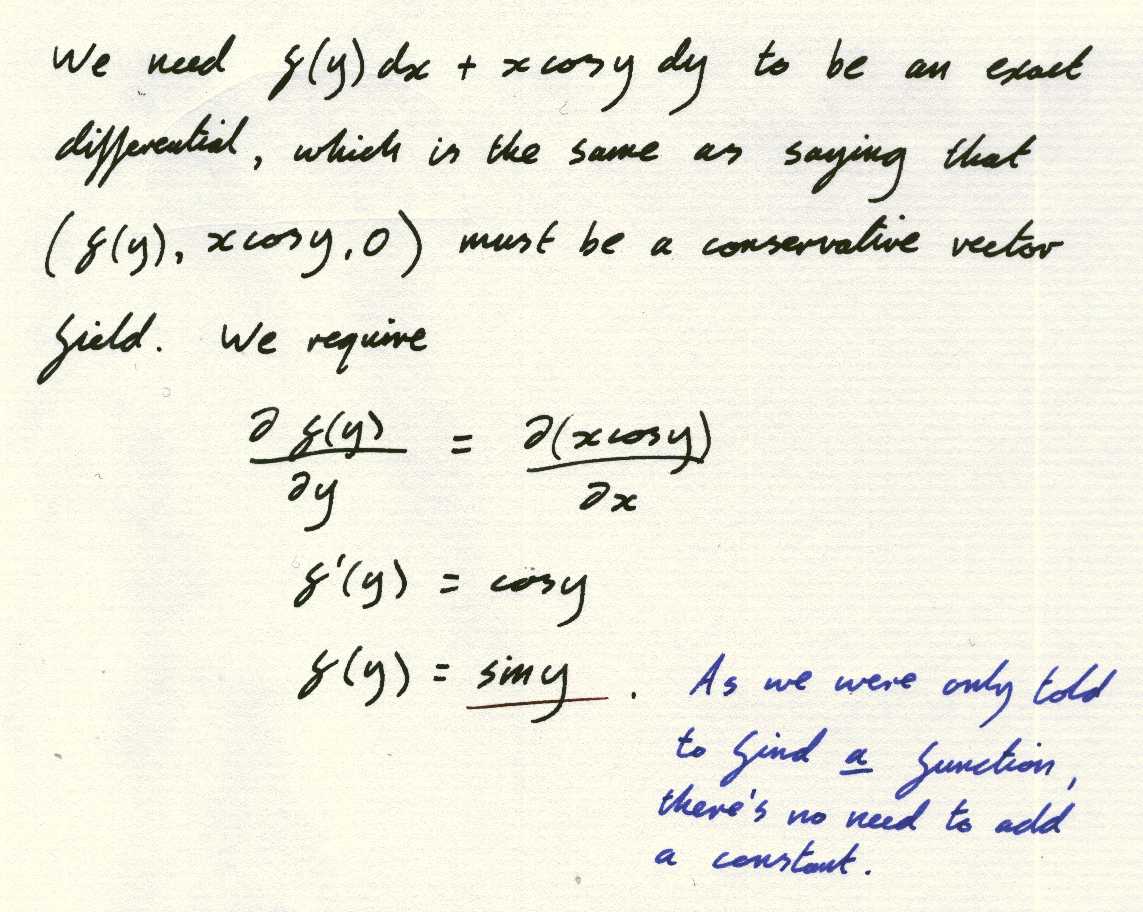 We need f(y) dx + x cos y dy to be an exact
differential, which is the same as saying that
(f(y), x cos y, 0) must be a conservative vector
field. We require
∂ f(y)/∂y = ∂(x cos y)/∂x
f'(y) = cos y
f(y) = sin y . As we were only told
to find a function,
there's no need to add
a constant.